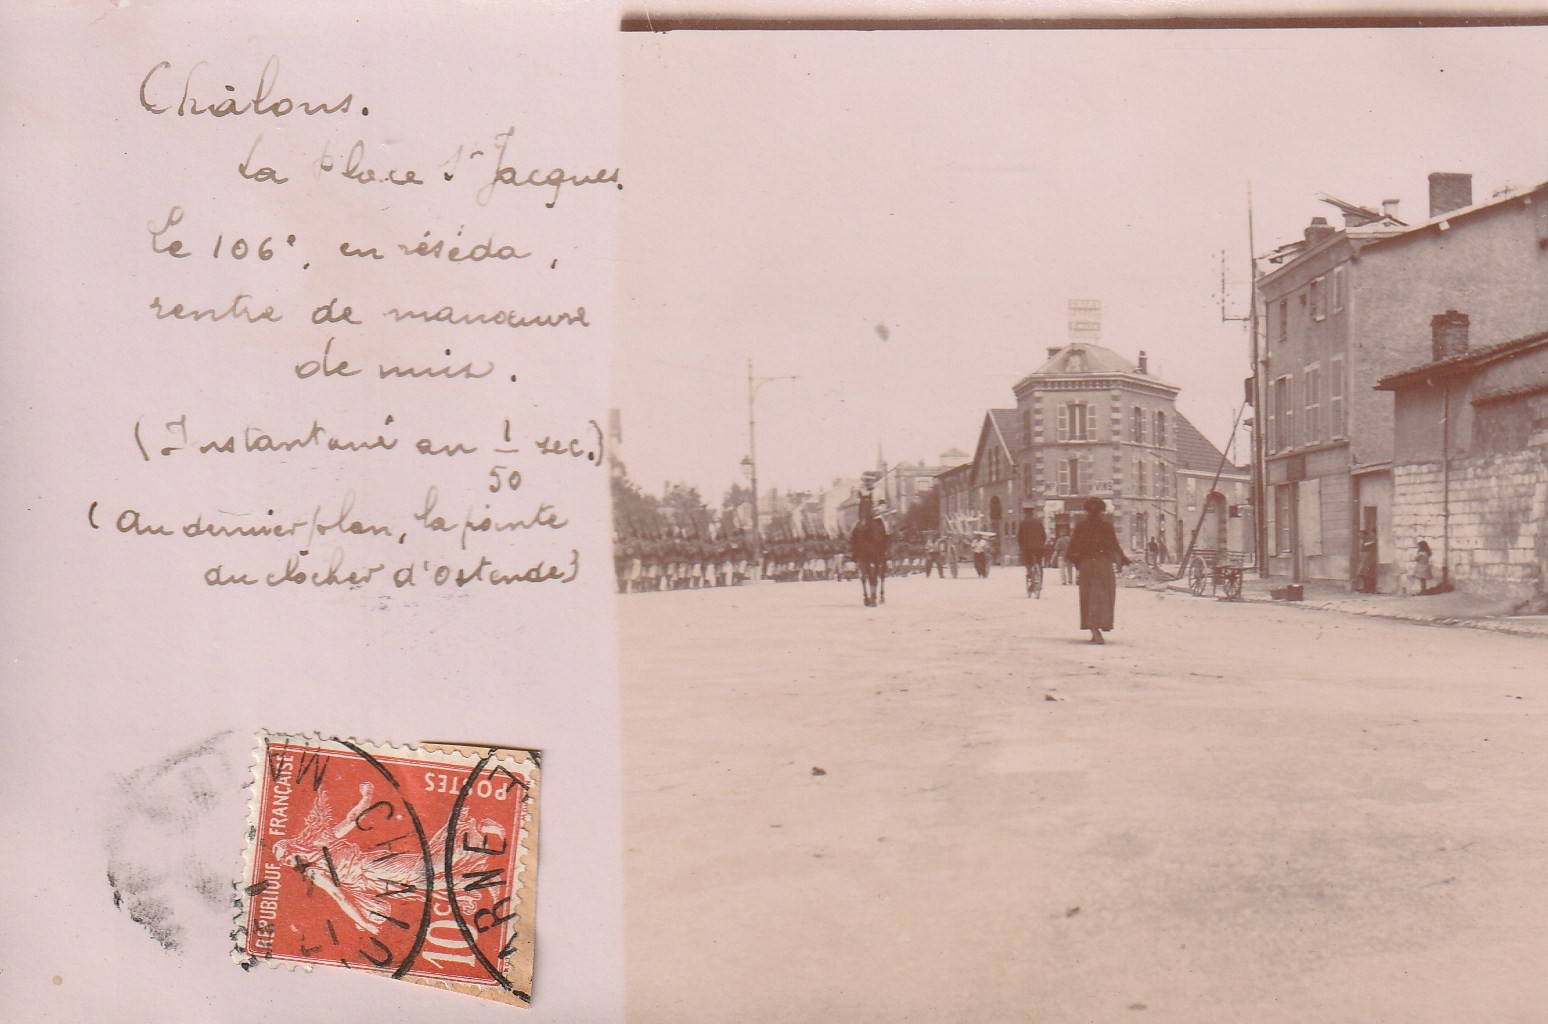 Châlons.
La place St Jacques.
Le 106e, en réséda,
rentre de manœuvre
de nuit.
(Instantané au 1/50 sec.)
(Au dernier plan, la pointe
du clocher d'Ostende)
REPUBLIQUE FRANÇAISE
POSTES
10c
VINS